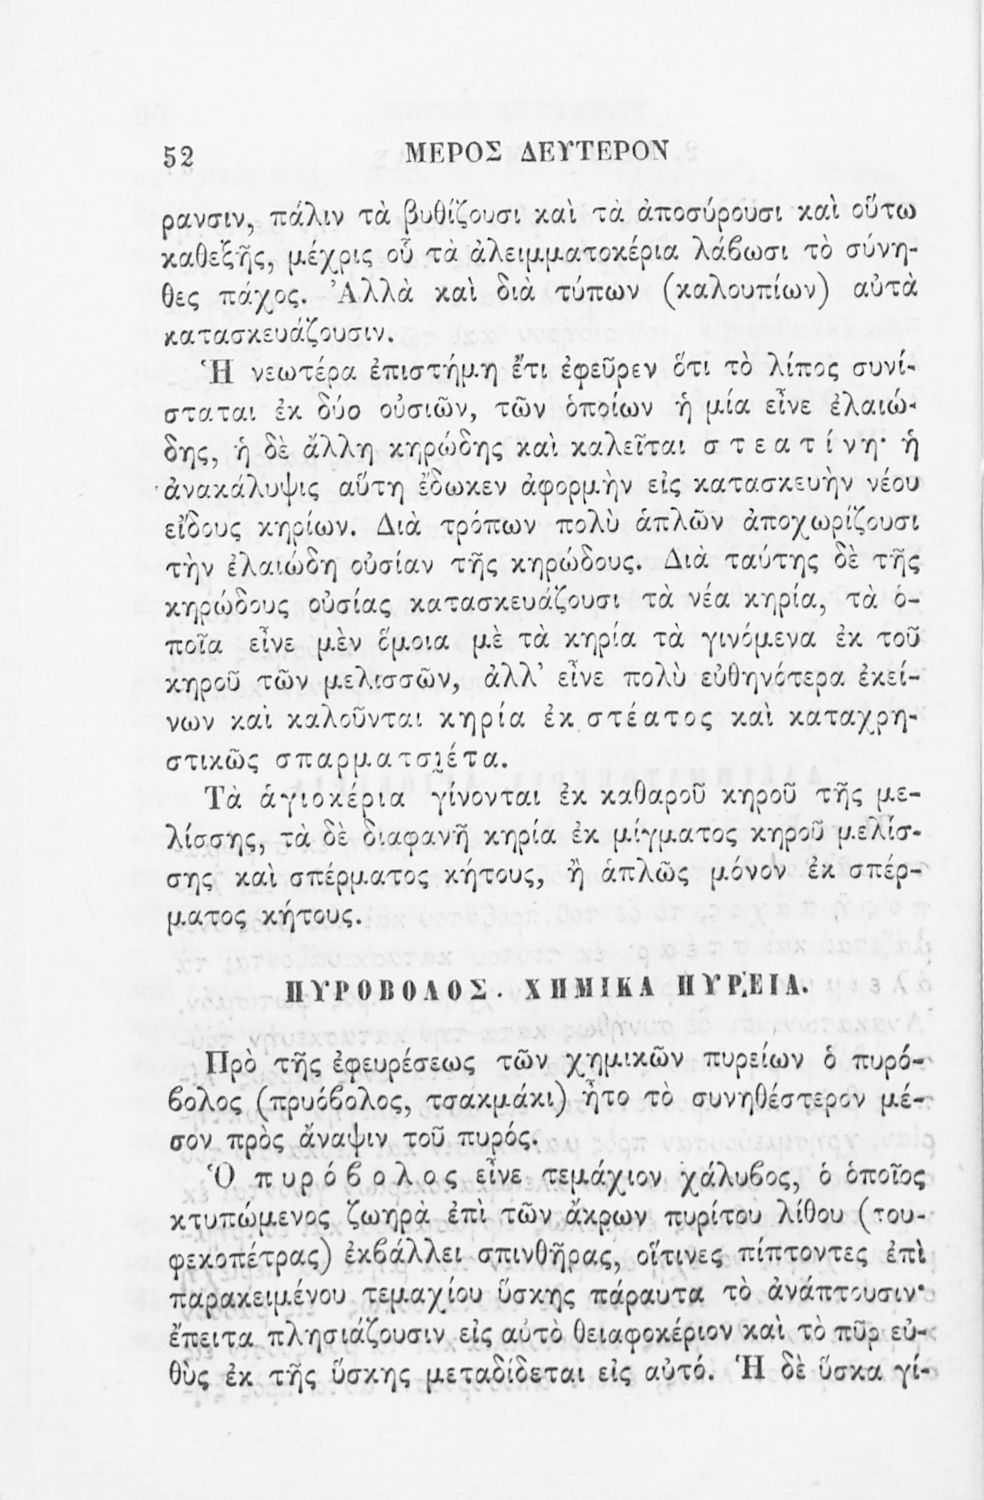 52
ΜΕΡΟΣ ΔΕΥΤΕΡΟΝ
ρανσιν, πάλιν τὰ βυθίζουσι καὶ τὰ ἀποσύρουσι καὶ οὕτω
καθεξῆς, μέχρις οὗ τὰ ἀλειμματοκέρια λάϐωσι τὸ σύνη-
θες πάχος. Ἀλλὰ καὶ διὰ τύπων (καλουπίων) αὐτὰ
κατασκευάζουσιν.
Ἡ νεωτέρα ἐπιστήμη ἔτι ἐφεῦρεν ὅτι τὸ λίπος συνί-
σταται ἐκ δύο οὐσιῶν, τῶν ὁποίων ἡ μία εἶνε ἐλαιώ-
δης, ἡ δὲ ἄλλη κηρώδης καὶ καλεῖται στεατίνη· ἡ
ἀνακάλυψις αὕτη ἔδωκεν ἀφορμὴν εἰς κατασκευὴν νέου
εἴδους κηρίων. Διὰ τρόπων πολὺ ἁπλῶν ἀποχωρίζουσι
τὴν ἐλαιώδη οὐσίαν τῆς κηρώδους. Διὰ ταύτης δὲ τῆς
κηρώδους οὐσίας κατασκευάζουσι τὰ νέα κηρία, τὰ ὁ-
ποῖα εἶνε μὲν ὅμοια μὲ τὰ κηρία τὰ γινόμενα ἐκ τοῦ
κηροῦ τῶν μελισσῶν, ἀλλ' εἶνε πολὺ εὐθηνότερα ἐκεί-
νων καὶ καλοῦνται κηρία ἐκ στέατος καὶ καταχρη-
στικῶς σπαρματσέτα.
Τὰ ἁγιοκέρια γίνονται ἐκ καθαροῦ κηροῦ τῆς με-
λίσσης, τὰ δὲ διαφανῆ κηρία ἐκ μίγματος κηροῦ μελίσ-
σης καὶ σπέρματος κήτους, ἢ ἁπλῶς μόνον ἐκ σπέρ-
ματος κήτους.
ΠΥΡΟΒΟΛΟΣ. ΧΗΜΙΚΑ ΠΥΡΕΙΑ.
Πρὸ τῆς ἐφευρέσεως τῶν χημικῶν πυρείων ὁ πυρό-
ϐολος (πρυόϐολος, τσακμάκι) ἦτο τὸ συνηθέστερον μέ-
σον πρὸς ἄναψιν τοῦ πυρός.
Ὁ πυρόϐολος εἶνε τεμάχιον χάλυϐος, ὁ ὁποῖος
κτυπώμενος ζωηρὰ ἐπὶ τῶν ἄκρων πυρίτου λίθου (του-
φεκοπέτρας) ἐκϐάλλει σπινθῆρας, οἵτινες πίπτοντες ἐπὶ
παρακειμένου τεμαχίου ὕσκης πάραυτα τὸ ἀνάπτουσιν·
ἔπειτα πλησιάζουσιν εἰς αὐτὸ θειαφοκέριον καὶ τὸ πῦρ εὐ-
θὺς ἐκ τῆς ὕσκης μεταδίδεται εἰς αὐτό. Ἡ δὲ ὕσκα γί-